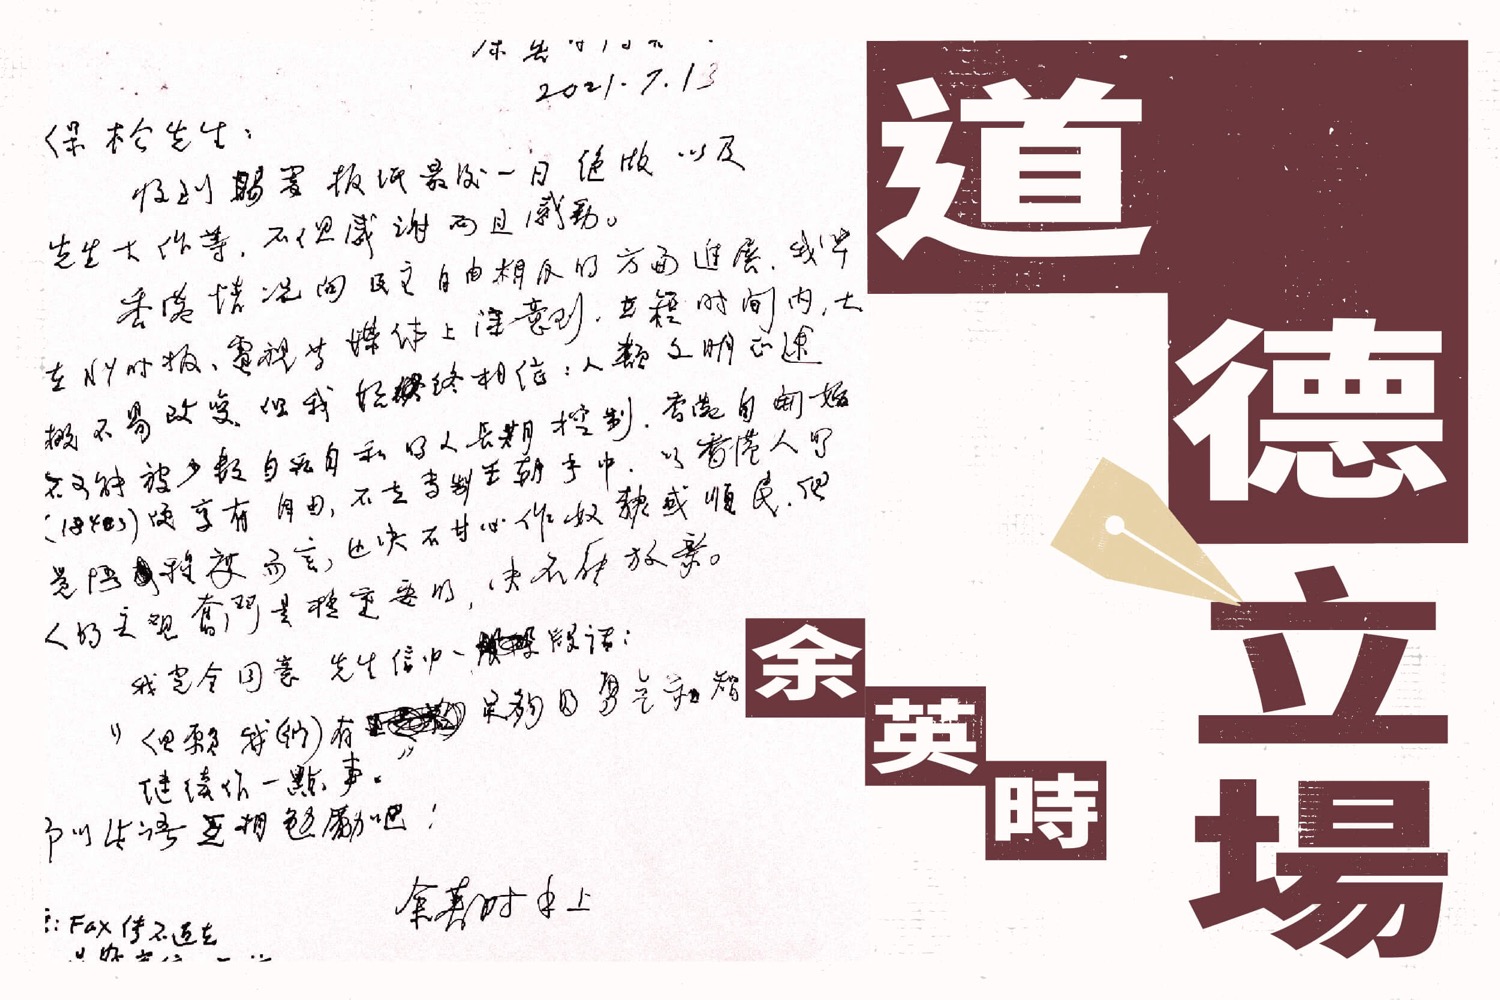 2021.7.13
保松先生：
收到賜寄报纸最後一日绝版以及
先生大作等，不但感谢而且感動。
香港情况向民主自由相反的方面進展，我早
在NY时报、電視等媒体上注意到，在短时间内，大
概不易改变。但我始終相信：人類文明正途
不可能被少数自私自利的人長期控制。香港自開始
(1840s)便享有自由，不在專制王朝手中。以香港人的
覺悟程度而言，也决不甘心作奴隸或順民。但
人的主观奮鬥是極重要的，决不能放棄。
我完全同意先生信中一段話：
“但願我(們)有足夠的勇气和智
继续作一點事。”
即以此語互相勉勵吧！
余英时手上
: Fax傳不过去
道
德
立
場
余
英
時